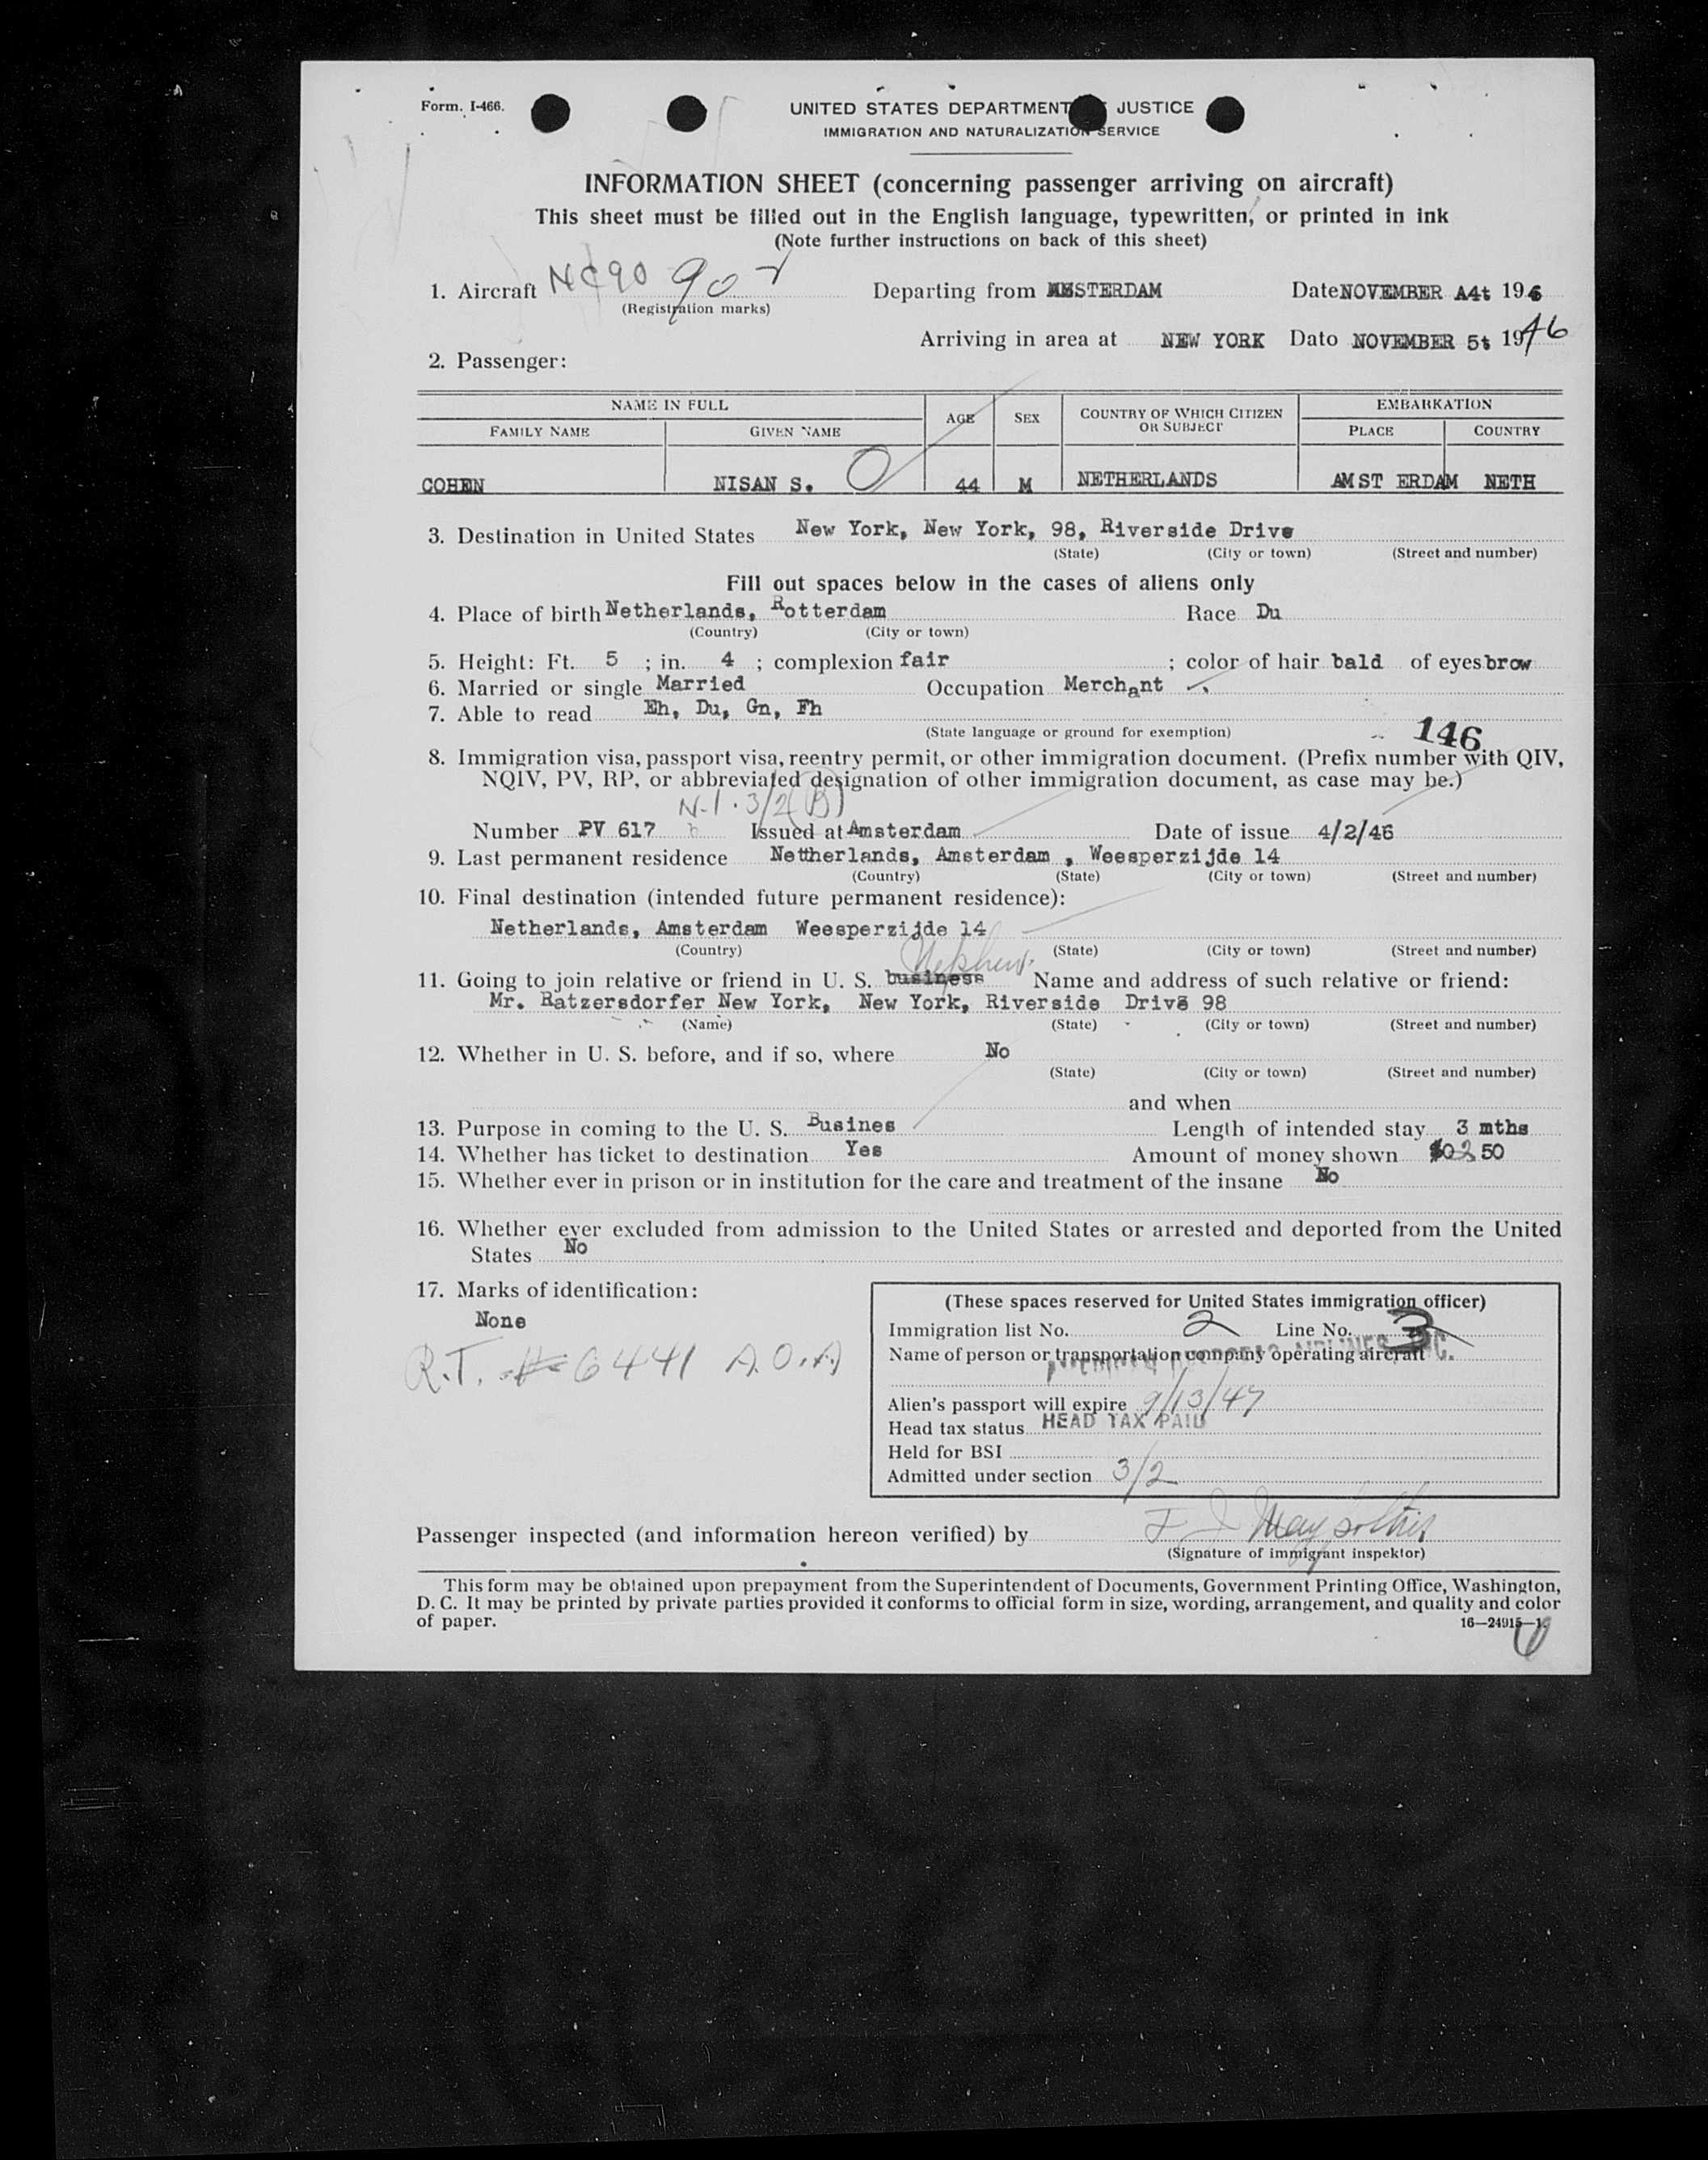 Form. I-466.
UNITED STATES DEPARTMENT JUSTICE
IMMIGRATION AND NATURALIZATION SERVICE
INFORMATION SHEET (concerning passenger arriving on aircraft)
This sheet must be filled out in the English language, typewritten, or printed in ink
(Note further instructions on back of this sheet)
1. Aircraft NC90 902 Departing from AMSTERDAM Date NOVEMBER 4t 1946
(Registration marks)
Arriving in area at NEW YORK Date NOVEMBER 5t 1946
2. Passenger:
NAME IN FULL AGE SEX COUNTRY OF WHICH CITIZEN OR SUBJECT EMBARKATION
FAMILY NAME GIVEN NAME PLACE COUNTRY
COHEN NISAN S. 44 M NETHERLANDS AMST ERDAM NETH
3. Destination in United States New York, New York, 98, Riverside Drive
(State) (City or town) (Street and number)
Fill out spaces below in the cases of aliens only
4. Place of birth Netherlands, Rotterdam Race Du
(Country) (City or town)
5. Height: Ft. 5 ; in. 4 ; complexion fair ; color of hair bald of eyes brow
6. Married or single Married Occupation Merchant
7. Able to read Eh, Du, Gn, Fh
(State language or ground for exemption)
146
8. Immigration visa, passport visa, reentry permit, or other immigration document. (Prefix number with QIV,
NQIV, PV, RP, or abbreviated designation of other immigration document, as case may be.)
N-1. 3/2 (B)
Number PV 617 Issued at Amsterdam Date of issue 4/2/46
9. Last permanent residence Nettherlands, Amsterdam , Weesperzijde 14
(Country) (State) (City or town) (Street and number)
10. Final destination (intended future permanent residence):
Netherlands, Amsterdam Weesperzijde 14
(Country) (State) (City or town) (Street and number)
Nephew.
11. Going to join relative or friend in U. S. business Name and address of such relative or friend:
Mr. Ratzersdorfer New York, New York, Riverside Drive 98
(Name) (State) (City or town) (Street and number)
12. Whether in U. S. before, and if so, where No
(State) (City or town) (Street and number)
and when
13. Purpose in coming to the U. S. Busines Length of intended stay 3 mths
14. Whether has ticket to destination Yes Amount of money shown 50
15. Whether ever in prison or in institution for the care and treatment of the insane No
16. Whether ever excluded from admission to the United States or arrested and deported from the United
States No
17. Marks of identification:
None
R.T. # 6441 A.O.A
(These spaces reserved for United States immigration officer)
Immigration list No. 2 Line No. 3
Name of person or transportation company operating aircraft
AMERICAN OVERSEAS AIRLINES INC.
Alien's passport will expire 9/13/47
Head tax status HEAD TAX PAID
Held for BSI
Admitted under section 3/2
Passenger inspected (and information hereon verified) by F J
(Signature of immigrant inspektor)
This form may be obtained upon prepayment from the Superintendent of Documents, Government Printing Office, Washington,
D. C. It may be printed by private parties provided it conforms to official form in size, wording, arrangement, and quality and color
of paper.
16—24915—1